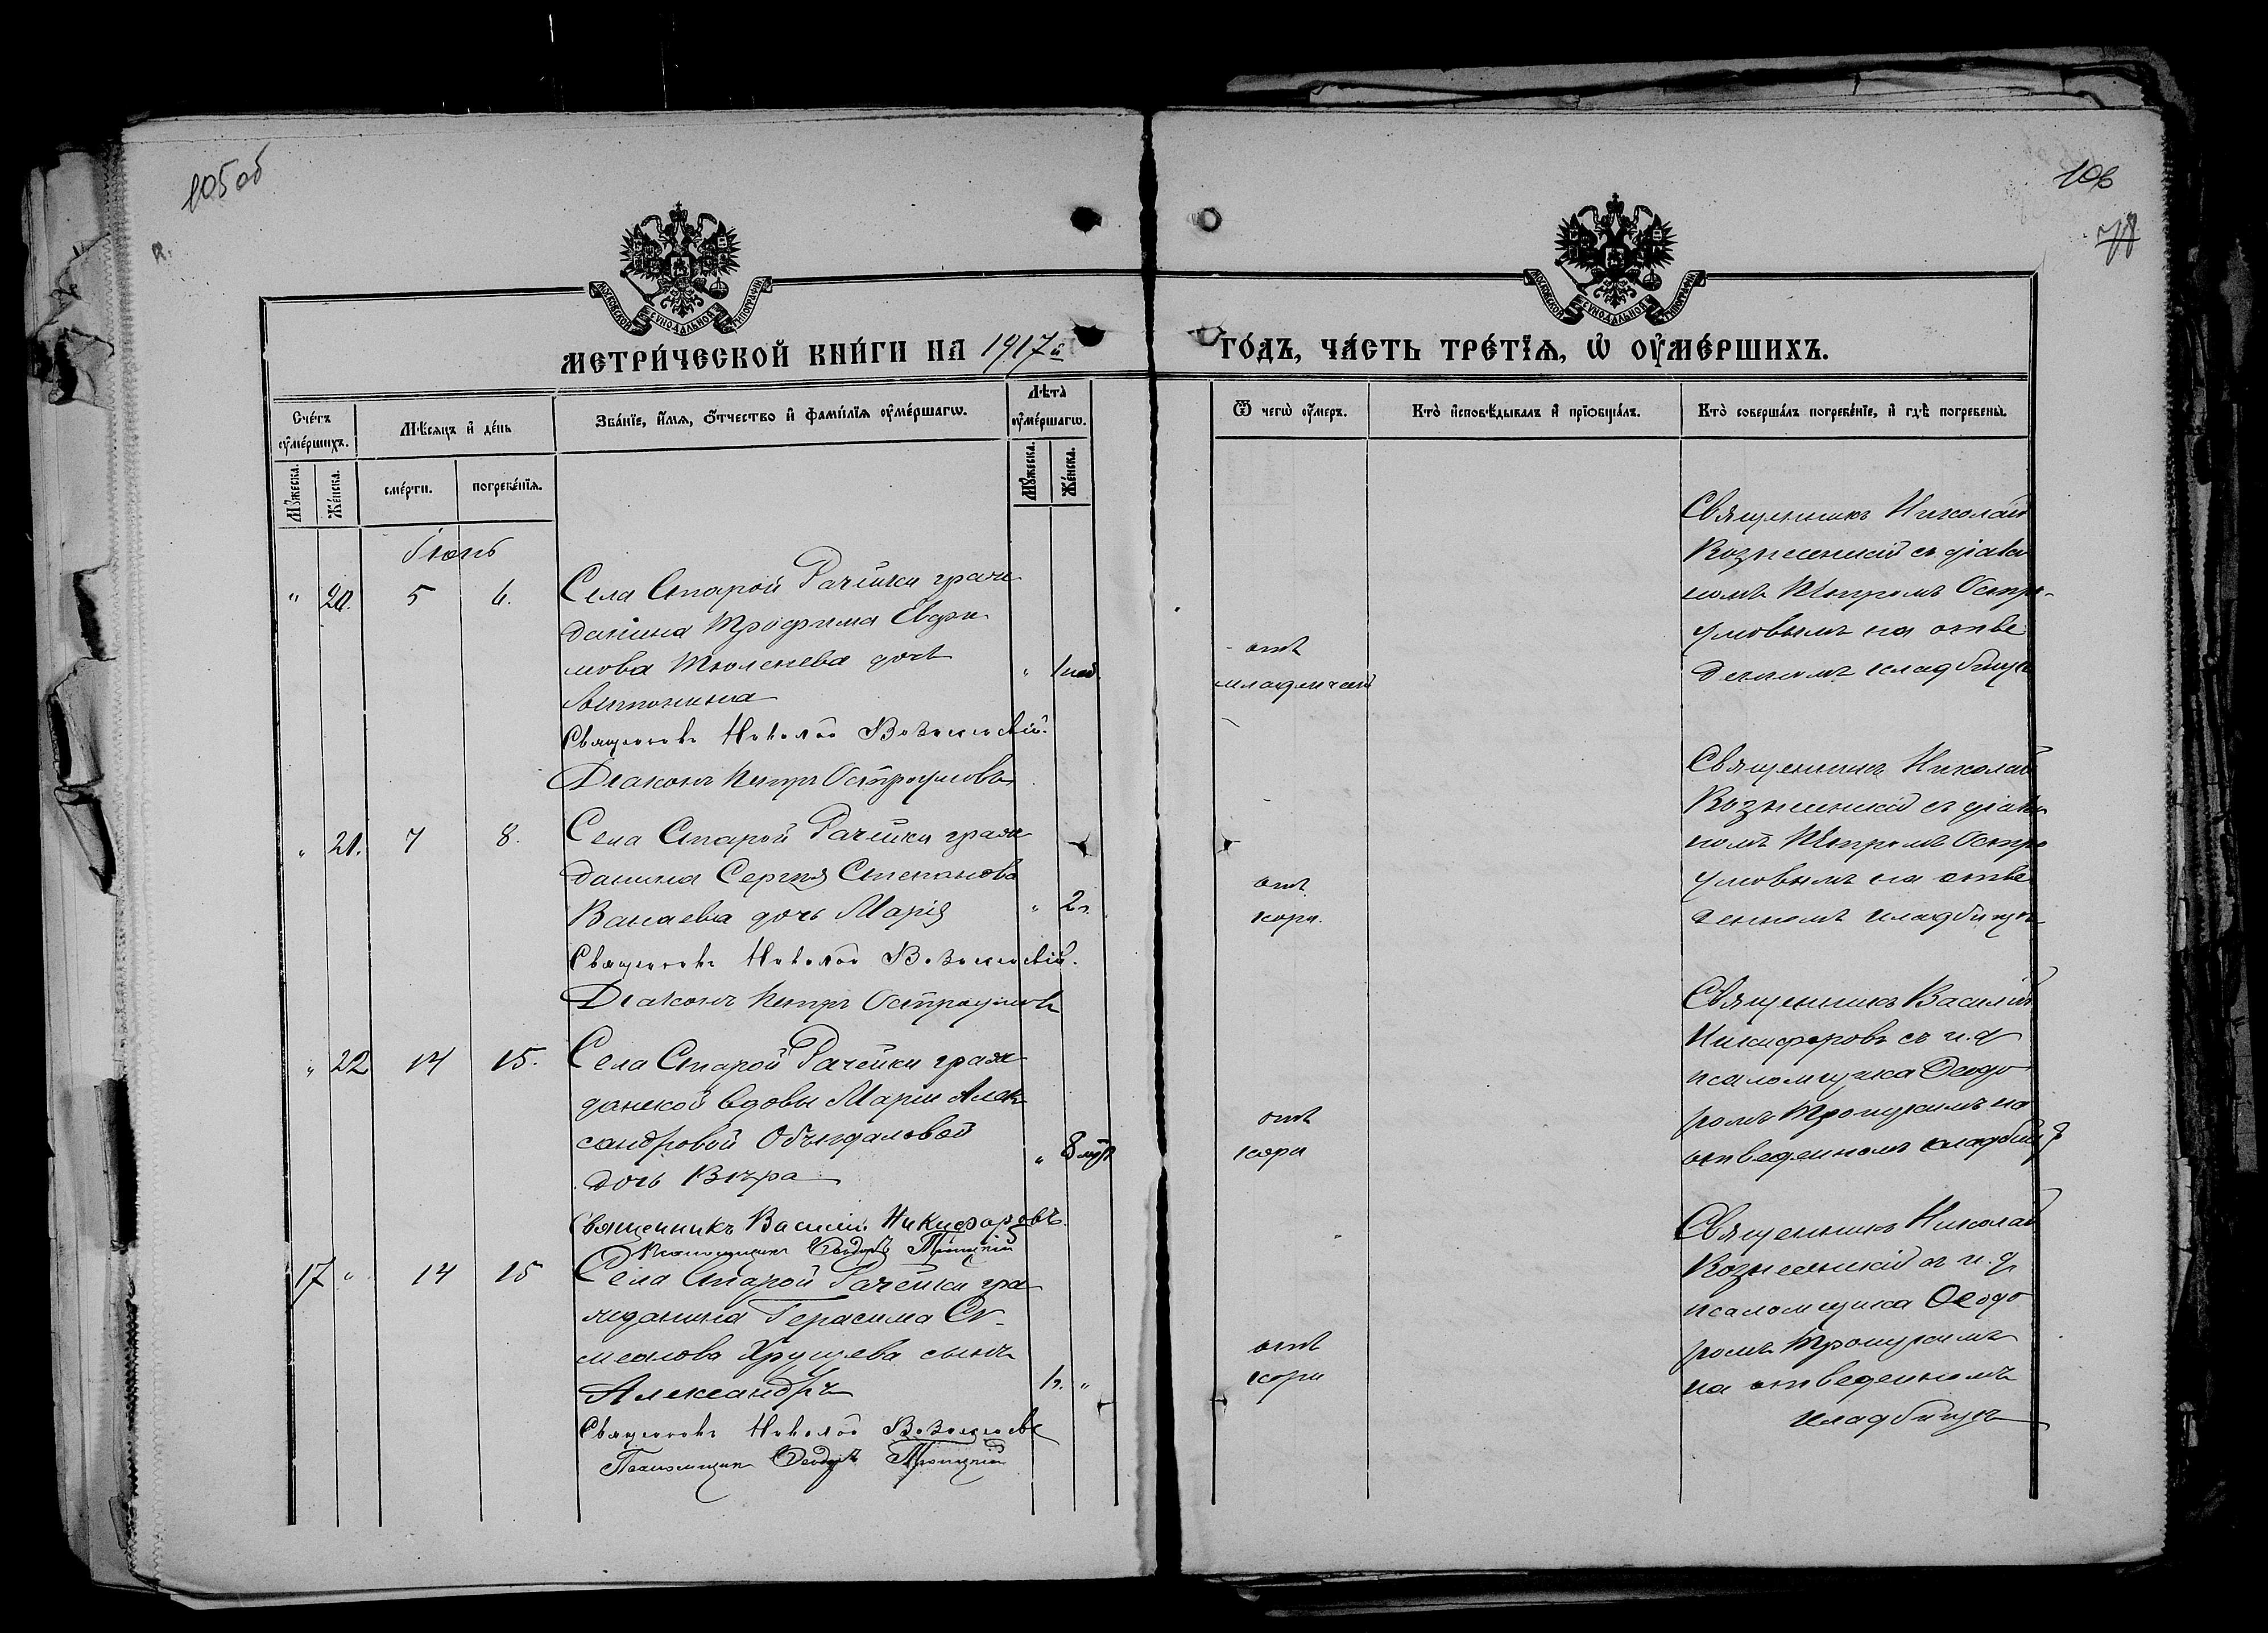 105об
106
78
МОСКОВСКОЙ СѴНОДАЛЬНОЙ ТИПОГРАФІИ
МОСКОВСКОЙ СѴНОДАЛЬНОЙ ТИПОГРАФІИ
МЕТРИ́ЧЕСКОЙ КНИ́ГИ НА 1917й
ГО́ДЪ, ЧА́СТЬ ТРЕ́ТЇѦ, Ѡ҆ ОУ҆МЕ́РШИХЪ.
Сче́тъ оу҆ме́ршихъ.
Мѣ́сяцъ и҆ де́нь
Зва́нїе, и҆́мѧ, ѻ҆́тчество и҆ фами́лїѧ оу҆ме́ршагѡ.
Лѣ̀та оу҆ме́ршагѡ.
Мꙋ́жеска.
Же́нска.
сме́рти.
погребе́нїѧ.
Мꙋ́жеска.
Же́нска.
Ѿ чегѡ̀ оу҆́меръ.
Кто̀ и҆сповѣ́дывалъ и҆ прїѡбща́лъ.
Кто̀ соверша́лъ погребе́нїе, и҆ гдѣ̀ погребены̀.
Іюнь
" 20. 5 6.
Села Старой Рачейки граж
данина Трофима Евфи
мова Тюленева дочь
Антонина
" 1 нед.
Священникъ Николай Вознесенскій.
Діаконъ Петръ Остроумовъ
отъ
младенческ
Священникъ Николай
Вознесенскій съ діако
номъ Петромъ Остро-
умовымъ на отве
денномъ кладбищѣ
" 21. 7 8.
Села Старой Рачейки граж
данина Сергія Степанова
Ванаева дочь Марія
" 2г.
Священникъ Николай Вознесенскій.
Діаконъ Петръ Остроумовъ
отъ
кори.
Священникъ Николай
Вознесенскій съ діако
номъ Петромъ Остро
умовымъ на отве
денномъ кладбищѣ
" 22 14 15.
Села Старой Рачейки граж
данской вдовы Маріи Алек
сандровой
дочь Вѣра
" 8 м
Священникъ Василій Никифоровъ.
Псаломщикъ Ѳеодоръ Троицкій
отъ
кори
Священникъ Василій
Никифоровъ съ и.д
псаломщика Ѳеодо
ромъ Троицкимъ на
отведенномъ кладбищѣ
17 " 14 15
Села Старой Рачейки гра
жданина Герасима Си-
меонова Хрущева сынъ
Александръ
1г. "
Священникъ Николай Вознесенскій
Псаломщикъ Ѳеодоръ Троицкій
отъ
кори
Священникъ Николай
Вознесенскій съ и.д.
псаломщика Ѳеодо
ромъ Троицкимъ
на отведенномъ
кладбищѣ